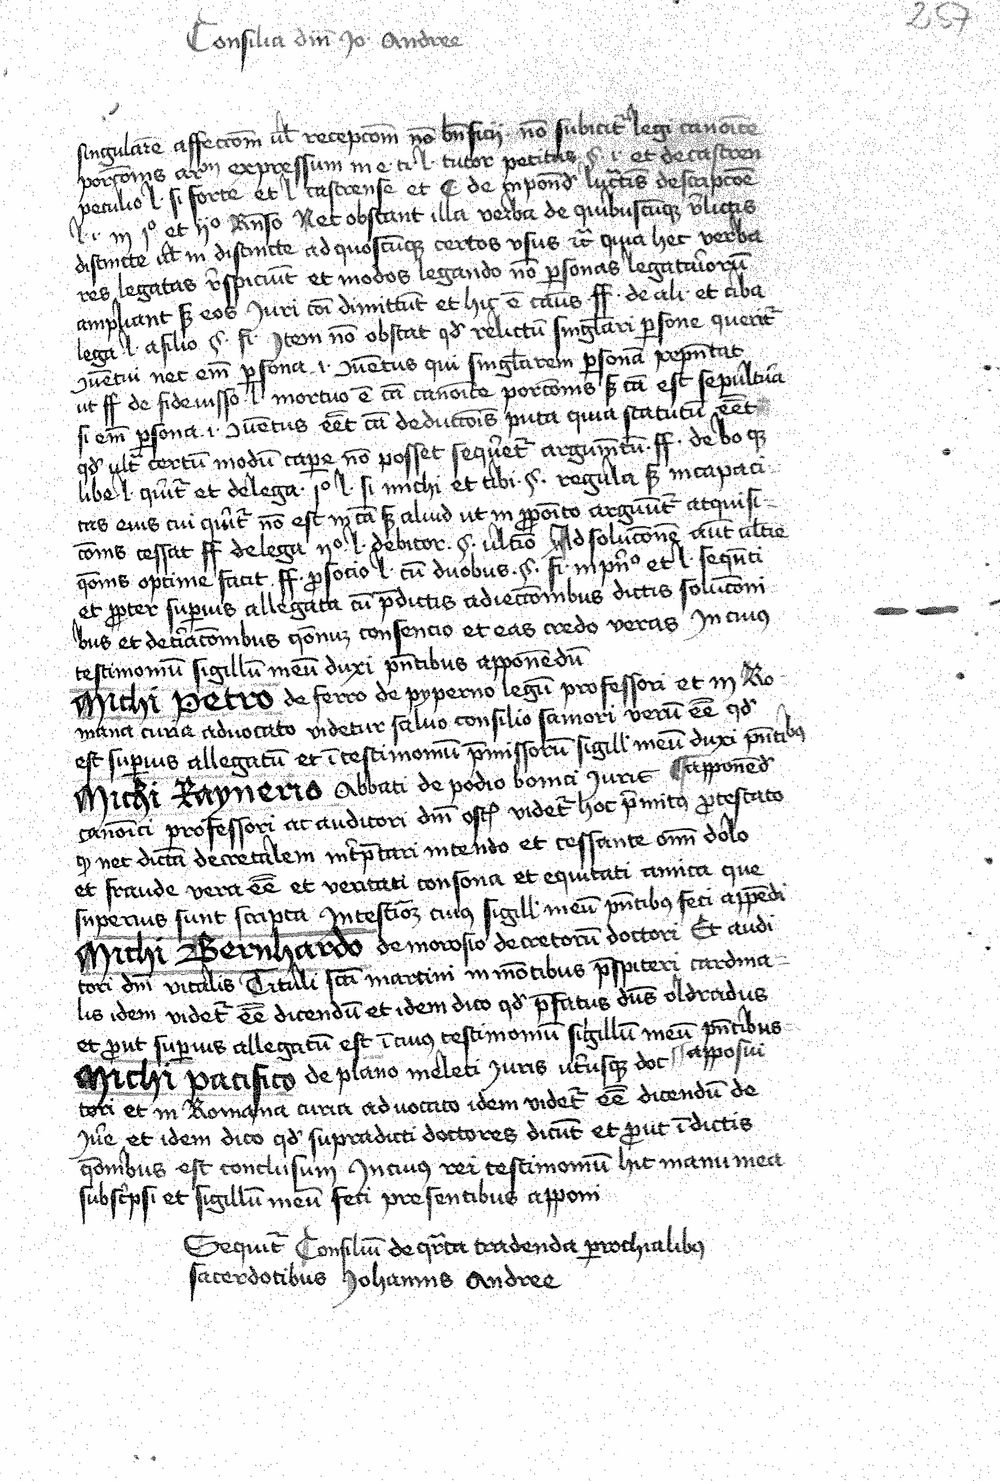 257
Consilia dm̄ Jo Andree
singularē affectōm ul̄ receptōm nō bn̄ficij · nō subicit᷑ legi canoīce
porc̄ōnis expressum tutor petitus §. i. et de castren
peculio l. si forte et l castrense et C de descripcōe
l. i. in i⁰ et ij⁰ Rn̄so Nec obstant illa verba de quibuscūq̨ relictis
distincte ul̄ in distincte ad quoscūq̨ certos vsus quia hec verba
res legatas r̄spiciūt et modos legando nō p̱sonas legatariorū
ampliant eos Juri cōi dimittūt et ff. de ali. et ciba
lega l. a filio §. fi. Item nō obstat qd̛ relictū singlari p̱sone querit᷑
nec em̄ p̱sona .i. qui singlarem p̱sonā rep̄n̄tat
ut ff de fideiusso l mortuo ē cā canoīce porcōnis cā est sepultura
si em̄ p̱sona .i. eēt cā deductōis puta quia statutū eēt
qd̛ ult᷑ certū modū cap̱e nō posset sequeret᷑ argumtū. ff. de bo q̨
libe l. et de lega. i⁰ l. si michi et tibi. §. regula in capaci
tas eius cui nō est in cā aliud ut in p̱posito arguūt᷑ atquisi
cōnis cessat ff de lega ij⁰. l. debitor. §. ultīo Ad solucōnē aūt alt̄ie
qōnis optime facit ff. p̱socio l. cū duobus. §. fi. in pn̄⁰ et l. sequn̄ti
et pp̱ter sup̱ius allegata cū p̄dictis adiectōnibus dictis solucōni
bus et dec̄lacōnibus qōnuꝫ consencio et eas credo veras In cuiꝰ
testimoniū sigillū meū duxi pn̄tibus apponēdū
Michi Petro de ferro de pyperno legū professori et in Ro
mana curia aduocato videtur saluo consilio saniori verū eē qd̛
est sup̱ius allegatū et ī testimoniū p̄missorū sigill̄ meū duxi pn̄tibꝰ
apponēd̛
Michi Raynerio Abbati de podio bonici Juris
canoīci professori ac auditori dm̄ videt᷑ hoc p̄mitt̄ꝰ p̱testato
q̨ nec dictā decretalem int̄p̄tari intendo et cessante om̄i dolo
et fraude vera eē et veritati consona et equitati amica que
superius sunt scripta In testīoꝫ cuiꝰ sigill̄ meū pn̄tibꝰ feci appēdi
Michi Bernhardo de morosio decretorū doctori Et audi
tori dm̄ vitalis Tituli sc̄i martini in mōtibus p̄spiteri cardina
lis idem videt᷑ eē dicendū et idem dico qd̛ p̄fatus dn̄s oldradus
et p̱ut sup̱ius allegatū est ī cuiꝰ testimoniū sigillū meū pn̄tibus
apposui
Michi pacifico de plano meleti Juris utriusq̨ doc
tori et in Romana curia aduocato idem videt᷑ eē dicendū de
Jur̄e et idem dico qd̛ supradicti doctores dicūt et p̱ut ī dictis
qōnibus est conclusum In cuiꝰ rei testimoniū hic manu mea
subscr̄psi et sigillū meū feci presentibus apponi
Sequit᷑ Consiliū de qr̄ta tradenda p̱rochialibꝰ
sacerdotibus Johannis Andree